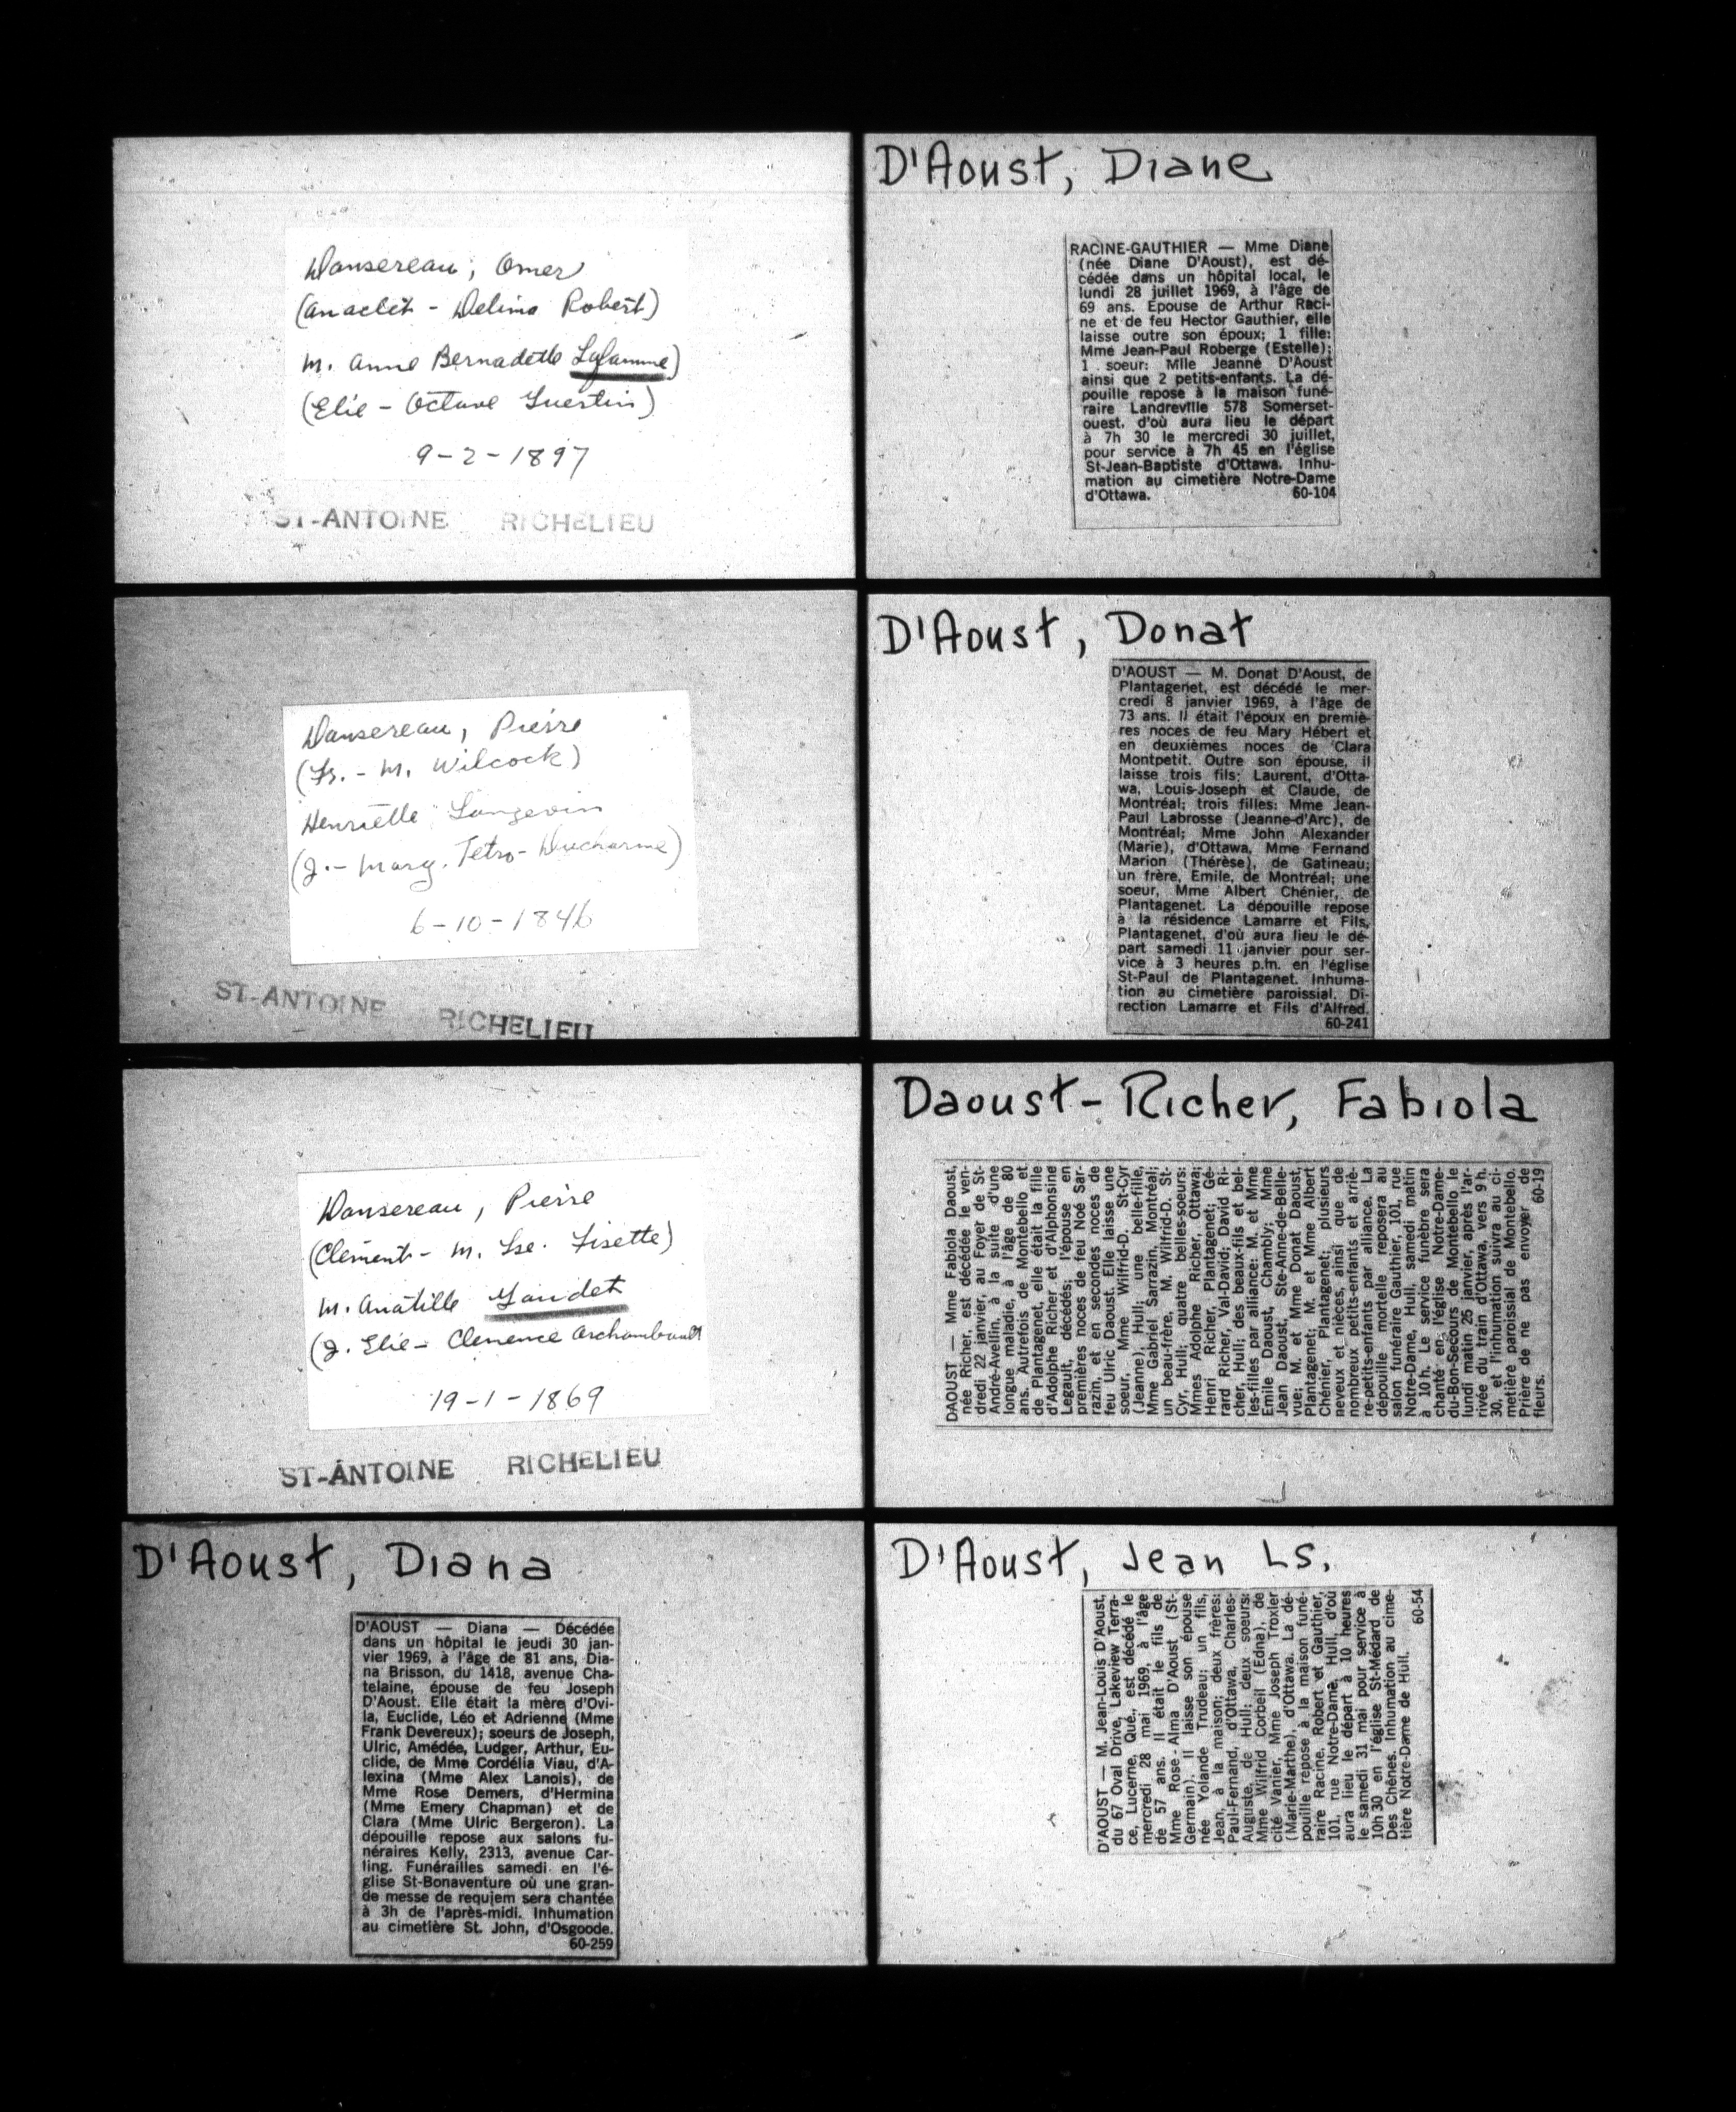 Dansereau, Omer
(Anaclet - Delima Robert)
m. Anne Bernadette Laflamme)
(Elie - Octave Guertin)
9-2-1897
ST-ANTOINE RICHELIEU
Dansereau, Pierre
(Fr. - M. Wilcock)
Henriette Langevin
(J. - Marg. Tetro - Ducharme)
6-10-1846
ST-ANTOINE RICHELIEU
Dansereau, Pierre
(Clément - M. Lse. Fisette)
m. Anatille Gaudet
(J. Elie - Clemence Archambault
19-1-1869
ST-ANTOINE RICHELIEU
D'Aoust, Diana
D'AOUST — Diana — Décédée
dans un hôpital le jeudi 30 jan-
vier 1969, à l'âge de 81 ans, Dia-
na Brisson, du 1418, avenue Cha-
telaine, épouse de feu Joseph
D'Aoust. Elle était la mère d'Ovi-
la, Euclide, Léo et Adrienne (Mme
Frank Devereux); soeurs de Joseph,
Ulric, Amédée, Ludger, Arthur, Eu-
clide, de Mme Cordélia Viau, d'A-
lexina (Mme Alex Lanois), de
Mme Rose Demers, d'Hermina
(Mme Emery Chapman) et de
Clara (Mme Ulric Bergeron). La
dépouille repose aux salons fu-
néraires Kelly, 2313, avenue Car-
ling. Funérailles samedi en l'é-
glise St-Bonaventure où une gran-
de messe de requiem sera chantée
à 3h de l'après-midi. Inhumation
au cimetière St. John, d'Osgoode.
60-259
D'Aoust, Diane
RACINE-GAUTHIER — Mme Diane
(née Diane D'Aoust), est dé-
cédée dans un hôpital local, le
lundi 28 juillet 1969, à l'âge de
69 ans. Epouse de Arthur Raci-
ne et de feu Hector Gauthier, elle
laisse outre son époux; 1 fille:
Mme Jean-Paul Roberge (Estelle);
1 soeur: Mlle Jeanne D'Aoust
ainsi que 2 petits-enfants. La dé-
pouille repose à la maison funé-
raire Landreville 578 Somerset-
ouest, d'où aura lieu le départ
à 7h 30 le mercredi 30 juillet,
pour service à 7h 45 en l'église
St-Jean-Baptiste d'Ottawa. Inhu-
mation au cimetière Notre-Dame
d'Ottawa. 60-104
D'Aoust, Donat
D'AOUST — M. Donat D'Aoust, de
Plantagenet, est décédé le mer-
credi 8 janvier 1969, à l'âge de
73 ans. Il était l'époux en premiè-
res noces de feu Mary Hébert et
en deuxièmes noces de Clara
Montpetit. Outre son épouse, il
laisse trois fils: Laurent, d'Otta-
wa, Louis-Joseph et Claude, de
Montréal; trois filles: Mme Jean-
Paul Labrosse (Jeanne-d'Arc), de
Montréal; Mme John Alexander
(Marie), d'Ottawa, Mme Fernand
Marion (Thérèse), de Gatineau;
un frère, Emile, de Montréal; une
soeur, Mme Albert Chénier, de
Plantagenet. La dépouille repose
à la résidence Lamarre et Fils,
Plantagenet, d'où aura lieu le dé-
part samedi 11 janvier pour ser-
vice à 3 heures p.m. en l'église
St-Paul de Plantagenet. Inhuma-
tion au cimetière paroissial. Di-
rection Lamarre et Fils d'Alfred.
60-241
Daoust-Richer, Fabiola
DAOUST — Mme Fabiola Daoust,
née Richer, est décédée le ven-
dredi 22 janvier, au Foyer de St-
André-Avellin, à la suite d'une
longue maladie, à l'âge de 80
ans. Autrefois de Montebello et
de Plantagenet, elle était la fille
d'Adolphe Richer et d'Alphonsine
Legault, décédés; l'épouse en
premières noces de feu Noé Sar-
razin, et en secondes noces de
feu Ulric Daoust. Elle laisse une
soeur, Mme Wilfrid-D. St-Cyr
(Jeanne), Hull; une belle-fille,
Mme Gabriel Sarrazin, Montréal;
un beau-frère, M. Wilfrid-D. St-
Cyr, Hull; quatre belles-soeurs:
Mmes Adolphe Richer, Ottawa;
Henri Richer, Plantagenet; Gé-
rard Richer, Val-David; David Ri-
cher, Hull; des beaux-fils et bel-
les-filles par alliance: M. et Mme
Emile Daoust, Chambly; Mme
Jean Daoust, Ste-Anne-de-Belle-
vue; M. et Mme Donat Daoust,
Plantagenet; M. et Mme Albert
Chénier, Plantagenet; plusieurs
neveux et nièces, ainsi que de
nombreux petits-enfants et arriè-
re-petits-enfants par alliance. La
dépouille mortelle reposera au
salon funéraire Gauthier, 101, rue
Notre-Dame, Hull, samedi matin
à 10 h. Le service funèbre sera
chanté en l'église Notre-Dame-
du-Bon-Secours de Montebello le
lundi matin 25 janvier, après l'ar-
rivée du train d'Ottawa, vers 9 h.
30, et l'inhumation suivra au ci-
metière paroissial de Montebello.
Prière de ne pas envoyer de
fleurs. 60-19
D'Aoust, Jean Ls.
D'AOUST — M. Jean-Louis D'Aoust,
du 67 Oval Drive, Lakeview Terra-
ce, Lucerne, Qué., est décédé le
mercredi 28 mai 1969, à l'âge
de 57 ans. Il était le fils de
Mme Rose-Alma D'Aoust (St-
Germain). Il laisse son épouse
née Yolande Trudeau; un fils,
Jean, à la maison; deux frères:
Paul-Fernand, d'Ottawa, Charles-
Auguste, de Hull; deux soeurs:
Mme Wilfrid Corbeil (Edna), de
cité Vanier, Mme Joseph Troxler
(Marie-Marthe), d'Ottawa. La dé-
pouille repose à la maison funé-
raire Racine, Robert et Gauthier,
101, rue Notre-Dame, Hull, d'où
aura lieu le départ à 10 heures
le samedi 31 mai pour service à
10h 30 en l'église St-Médard de
Des Chênes. Inhumation au cime-
tière Notre-Dame de Hull.
60-54